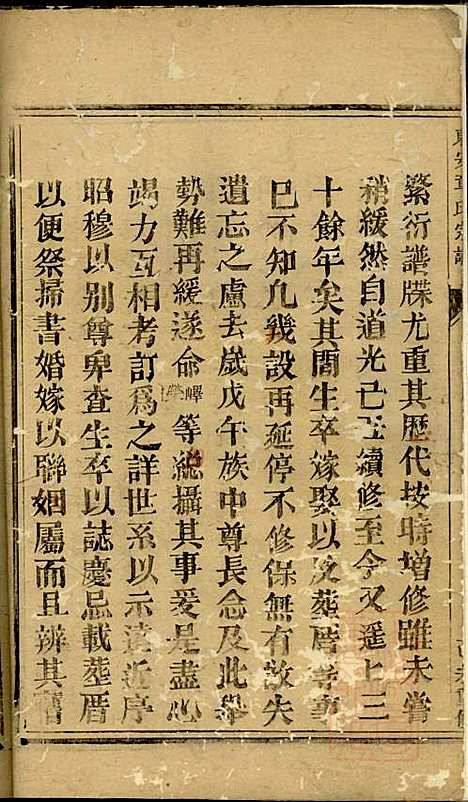 繁衍譜牒尤重其歷代按時增修雖未嘗
稍緩然自道光己丑續修至今又遥上三
十餘年矣其間生卒嫁娶以及葬厝等事
已不知几幾設再延停不修保無有故失
遺忘之慮去歲戊午族中尊長念及此舉
勢難再緩遂命嶧等總攝其事爰是盡心
竭力互相考訂爲之詳世系以示遠近序
昭穆以别尊卑查生卒以誌慶忌載葬厝
以便祭掃書婚嫁以聯姻屬而且辨其舊
氏宗譜